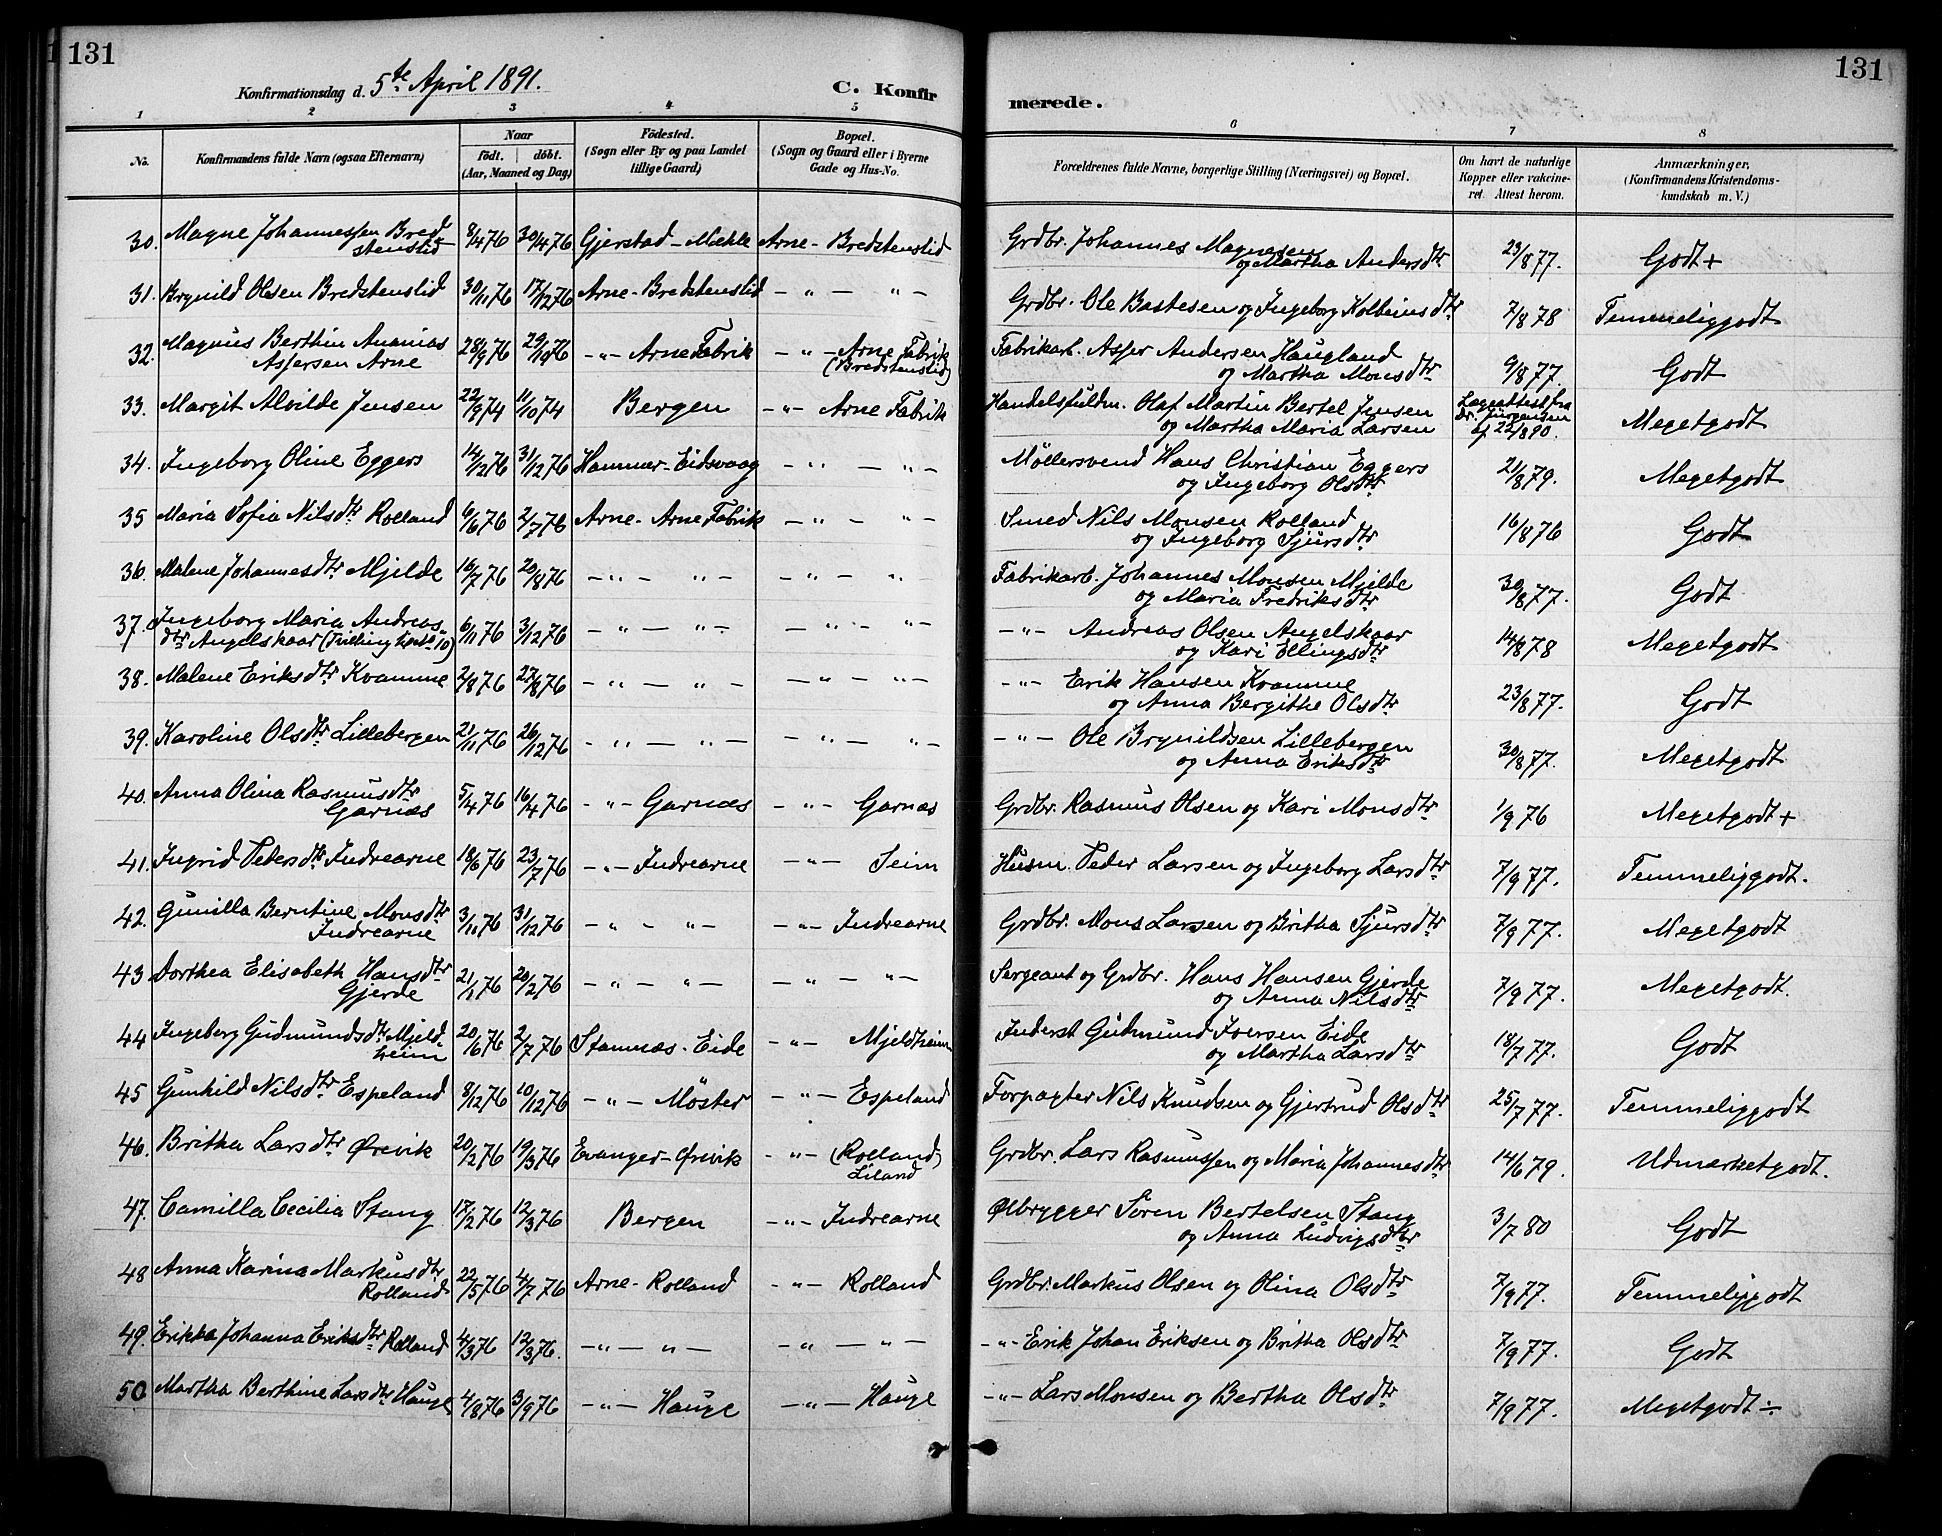 131
131
Konfirmationsdag d. 5te April 1891.
C. Konfirmerede.
1 2 3 4 5 6 7 8
No. | Konfirmandens fulde Navn (ogsaa Efternavn) | Naar født. døbt. (Aar, Maaned og Dag) | Födested. (Sogn eller By og paa Landet tillige Gaard) | Bopæl. (Sogn og Gaard eller i Byerne Gade og Hus-No. | Forældrenes fulde Navne, borgerlige Stilling (Næringsvei) og Bopæl. | Om havt de naturlige Kopper eller vakcineret. Attest herom. | Anmærkninger, (Konfirmandens Kristendomskundskab m. V.)
30. Magne Johannessen Bredstenslid 8/4 76 30/4 76 Gjerstad - Mæhle Arne - Bredstenslid Grdbr. Johannes Magnesen og Martha Andersdtr 23/8 77. Godt+
31. Brynild Olsen Bredstenslid 30/11 76 17/12 76 Arne - Bredstenslid - " - " - Grdbr. Ole Bastesen og Ingeborg Kolbeinsdtr 7/8 78 Temmeliggodt
32. Magnus Berthin Ananias Assersen Arne 28/9 76 29/10 76 - " - Arne Fabrik - " - Arne Fabrik (Bredstenslid) Fabrikarb. Asser Andersen Haugland og Martha Monsdtr 9/8 77. Godt
33. Margit Alvilde Jensen 22/9 74 11/10 74 Bergen - " - Arne Fabrik Handelsfuldm. Olaf Martin Bertel Jensen og Martha Maria Larsen Lægeattest fra Dr. Jürgensen af 22/8 90. Megetgodt
34. Ingeborg Oline Eggers 14/12 76 31/12 76 Hammer - Eidsvaag - " - " - Møllersvend Hans Christian Eggers og Ingeborg Olsdtr 21/8 79. Megetgodt
35 Maria Sofia Nilsdtr Rolland 6/6 76 2/7 76 Arne - Arne Fabrik - " - " - Smed Nils Monsen Rolland og Ingeborg Sjursdtr 16/8 76 Godt
36. Malene Johannesdtr Mjelde 16/7 76 20/8 76 - " - " - - " - " - Fabrikarb. Johannes Monsen Mjelde og Maria Fredriksdtr 30/8 77. Godt
37. Ingeborg Maria Andreasdtr Angelskaar 6/11 76 3/12 76 - " - " - - " - " - - " - Andreas Olsen Angelskaar og Kari Ellingsdtr 14/8 78 Megetgodt
38. Malene Eriksdtr Kvamme 2/8 76 27/8 76 - " - " - - " - " - - " - Erik Hansen Kvamme og Anna Bergithe Olsdtr 23/8 77. Godt
39. Karoline Olsdtr Lillebergen 21/11 76 26/12 76 - " - " - - " - " - - " - Ole Brynildsen Lillebergen og Anna Eriksdtr 30/8 77. Megetgodt
40. Anna Olina Rasmusdtr Garnæs 5/4 76 16/4 76 - " - Garnæs - " - Garnæs Grdbr. Rasmus Olsen og Kari Monsdtr 1/9 76 Megetgodt+
41. Ingrid Pedersdtr Indrearne 18/6 76 23/7 76 - " - Indrearne - " - Seim Husm. Peder Larsen og Ingeborg Larsdtr 7/9 77. Temmeliggodt.
42. Gunilla Berntine Monsdtr Indrearne 3/11 76 31/12 76 - " - " - - " - Indrearne Grdbr. Mons Larsen og Britha Sjursdtr 7/9 77. Megetgodt
43 Dorthea Elisabeth Hansdtr Gjerde 21/1 76 20/2 76 - " - " - - " - " - Sergeant og Grdbr. Hans Hansen Gjerde og Anna Nilsdtr 7/9 77. Megetgodt.
44 Ingeborg Gudmundsdtr Mjeldheim 20/6 76 2/7 76 Stamnæs - Eide - " - Mjeldheim Inderst Gudmund Iversen Eide og Martha Larsdtr 18/7 77. Godt
45 Gunhild Nilsdtr Espeland 8/12 76 10/12 76 - " - Møster - " - Espeland Forpagter Nils Knudsen og Gjertrud Olsdtr 25/7 77. Temmeliggodt
46. Britha Larsdtr Ørevik 20/2 76 19/3 76 Evanger - Ørevik - " - (Rolland) Liland Grdbr. Lars Rasmussen og Maria Johannesdtr 14/6 79. Udmærketgodt.
47. Camilla Cecilia Stang 17/2 76 12/3 76 Bergen - " - Indrearne Ølbrygger Sören Bertelsen Stang og Anna Ludvigsdtr 3/7 80 Godt
48 Anna Karina Markusdtr Rolland 22/5 76 4/7 76 Arne - Rolland - " - Rolland Grdbr. Markus Olsen og Olina Olsdtr 7/9 77. Temmeliggodt
49. Erikka Johanna Eriksdtr Rolland 4/3 76 12/3 76. - " - " - - " - " - - " - Erik Johan Eriksen og Britha Olsdtr 7/9 77. Godt
50 Martha Berthine Larsdtr Hauge 4/8 76 3/9 76 - " - Hauge - " - Hauge - " - Lars Monsen og Bertha Olsdtr 7/9 77. Megetgodt÷